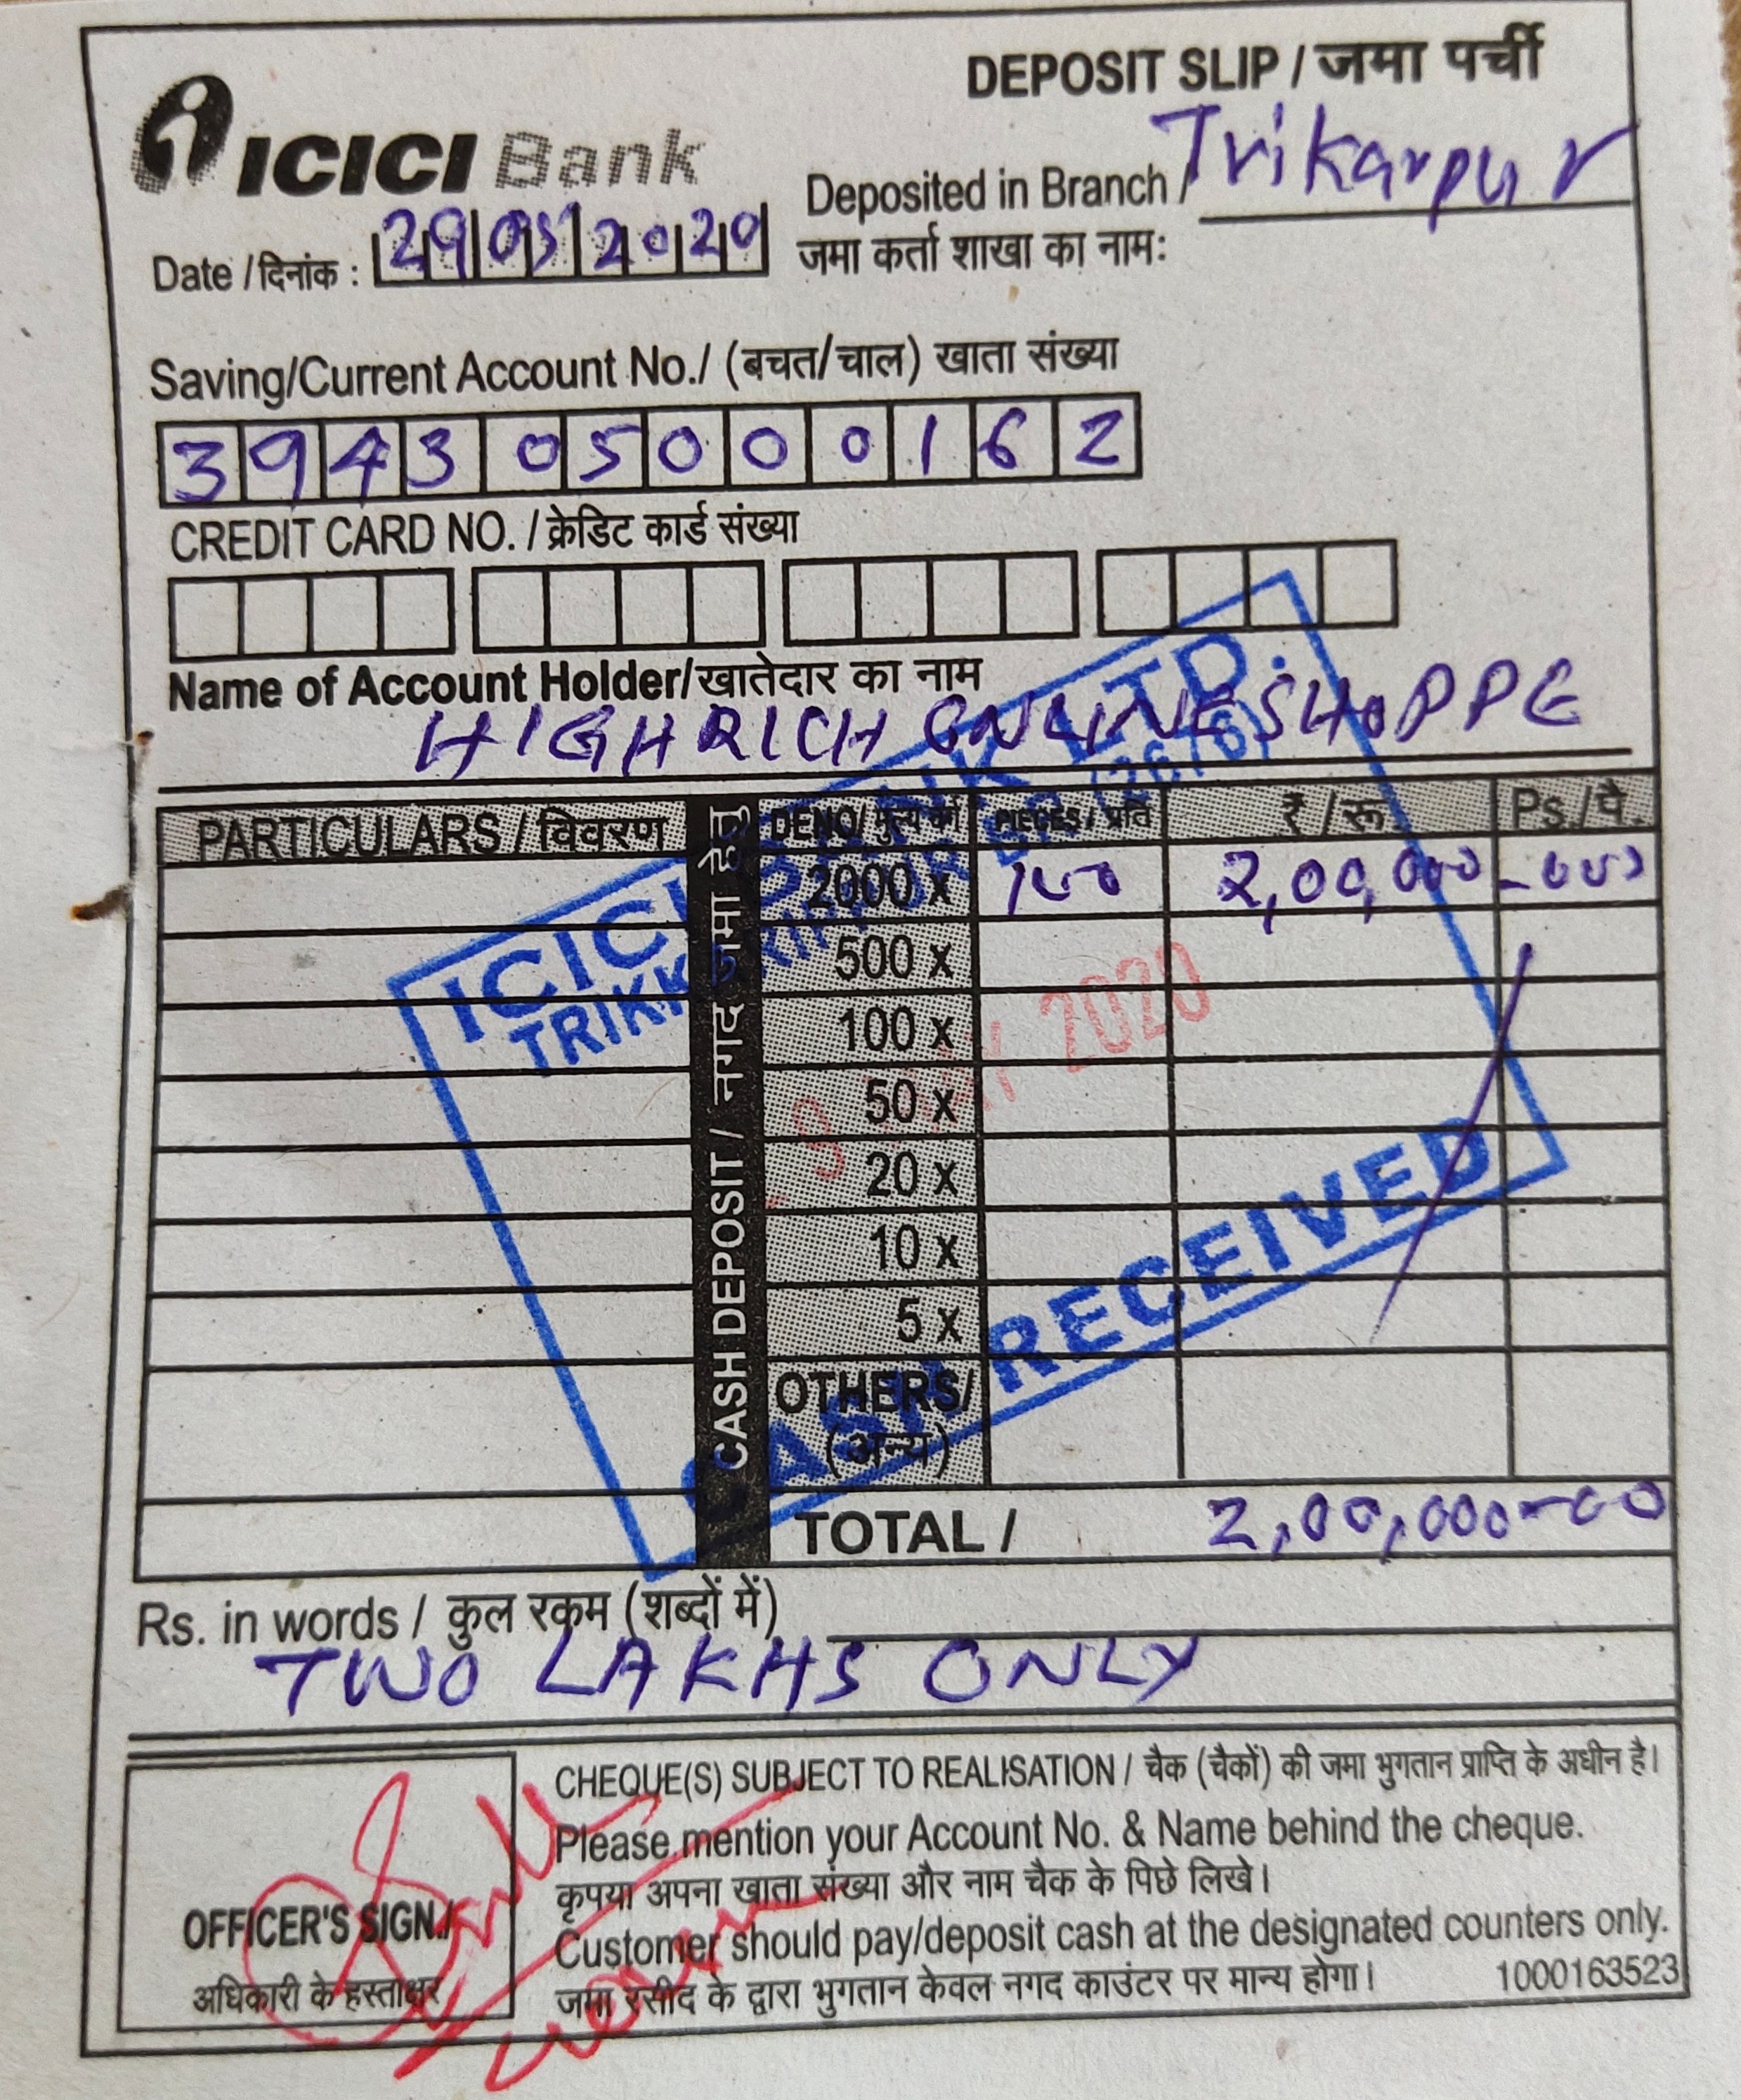 DEPOSIT SLIP / जमा पर्ची
ICICI Bank
Deposited in Branch / Trikarpur
जमा कर्ता शाखा का नाम:
Date / दिनांक : 29 05 2020
Saving/Current Account No./ (बचत/चाल) खाता संख्या
3943 0500 0162
CREDIT CARD NO. / क्रेडिट कार्ड संख्या
Name of Account Holder/खातेदार का नाम
HIGHRICH ONLINE SHOPPE
PARTICULARS / विवरण DENO/ मुल्य को PIECES / प्रति ₹ / रू. Ps./पै.
CASH DEPOSIT / नगद जमा हेतु
2000 x 100 2,00,000 - 00
500 x
100 x
50 x
20 x
10 x
5 x
OTHERS/
(अन्य)
TOTAL / 2,00,000-00
ICICI BANK LTD.
CASH RECEIVED
9 MAY 2020
Rs. in words / कुल रकम (शब्दों में)
TWO LAKHS ONLY
OFFICER'S SIGN./
अधिकारी के हस्ताक्षर
CHEQUE(S) SUBJECT TO REALISATION / चैक (चैकों) की जमा भुगतान प्राप्ति के अधीन है।
Please mention your Account No. & Name behind the cheque.
कृपया अपना खाता संख्या और नाम चैक के पिछे लिखे।
Customer should pay/deposit cash at the designated counters only.
जमा रसीद के द्वारा भुगतान केवल नगद काउंटर पर मान्य होगा। 1000163523